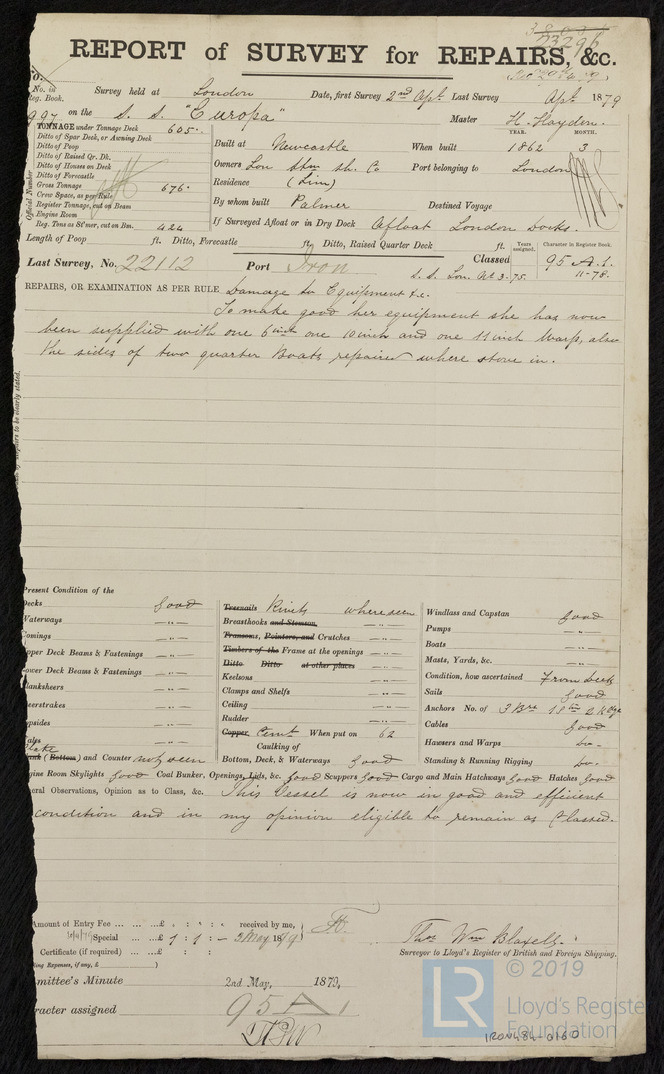 23296
REPORT of SURVEY for REPAIRS, &c.
No. in Reg. Book. Survey held at London Date, first Survey 2nd Apl. Last Survey Apl. 1879
997 on the S. S. "Europa" Master H. Hayden.
TONNAGE under Tonnage Deck 605
Ditto of Spar Deck, or Awning Deck
Ditto of Poop
Ditto of Raised Qr. Dk.
Ditto of Houses on Deck
Ditto of Forecastle
Gross Tonnage 676
Crew Space, as per Rule
Register Tonnage, cut on Beam
Engine Room
Reg. Tons as St'mer, cut on Bm. 424
Official Number
YEAR. MONTH.
Built at Newcastle When built 1862 3
Owners Lon Stm Sh. Co Port belonging to London
Residence (Lim)
By whom built Palmer Destined Voyage
If Surveyed Afloat or in Dry Dock Afloat London Docks.
Length of Poop ft. Ditto, Forecastle ft. Ditto, Raised Quarter Deck ft. Years assigned. Character in Register Book.
Last Survey, No. 22112 Port Iron Classed 95 A.1.
S. S. Lon. No 3-75. 11-78.
REPAIRS, OR EXAMINATION AS PER RULE Damage to Equipment &c.
To make good her equipment she has now
been supplied with one 6 inch one 10 inch and one 11 inch Warp, also
the sides of two quarter Boats repaired where stove in.
to be clearly stated.
Present Condition of the
Decks good
Waterways -"-
Comings -"-
Upper Deck Beams & Fastenings -"-
Lower Deck Beams & Fastenings -"-
Planksheers -"-
Sheerstrakes -"-
Topsides -"-
Wales -"-
(Bottom) and Counter not seen
Treenails Rivets where seen
Breasthooks and Stemson -"-
Transoms, Pointers, and Crutches -"-
Timbers of the Frame at the openings -"-
Ditto Ditto at other places -"-
Keelsons -"-
Clamps and Shelfs -"-
Ceiling -"-
Rudder -"-
Copper Cemt When put on 62
Caulking of
Bottom, Deck, & Waterways good
Windlass and Capstan good
Pumps -"-
Boats -"-
Masts, Yards, &c. -"-
Condition, how ascertained From deck
Sails good
Anchors No. of 3 Brs 1 Stm 2 Kdge
Cables good
Hawsers and Warps Do-
Standing & Running Rigging Do-
Engine Room Skylights good Coal Bunker, Openings, Lids, &c. good Scuppers good Cargo and Main Hatchways good Hatches good
General Observations, Opinion as to Class, &c. This Vessel is now in good and efficient
condition and in my opinion eligible to remain as Classed.
Amount of Entry Fee ... ... ...£ : : : received by me,
Special ... ...£ 1 : 1 : - 2 May 1879
Certificate (if required) ...£ : :
Thos Wm Blaxell.
Surveyor to Lloyd's Register of British and Foreign Shipping.
(Travelling Expenses, if any, £ )
Committee's Minute 2nd May, 1879.
Character assigned 95 A 1
LR
© 2019
Lloyd's Register
Foundation
IRON484-0160